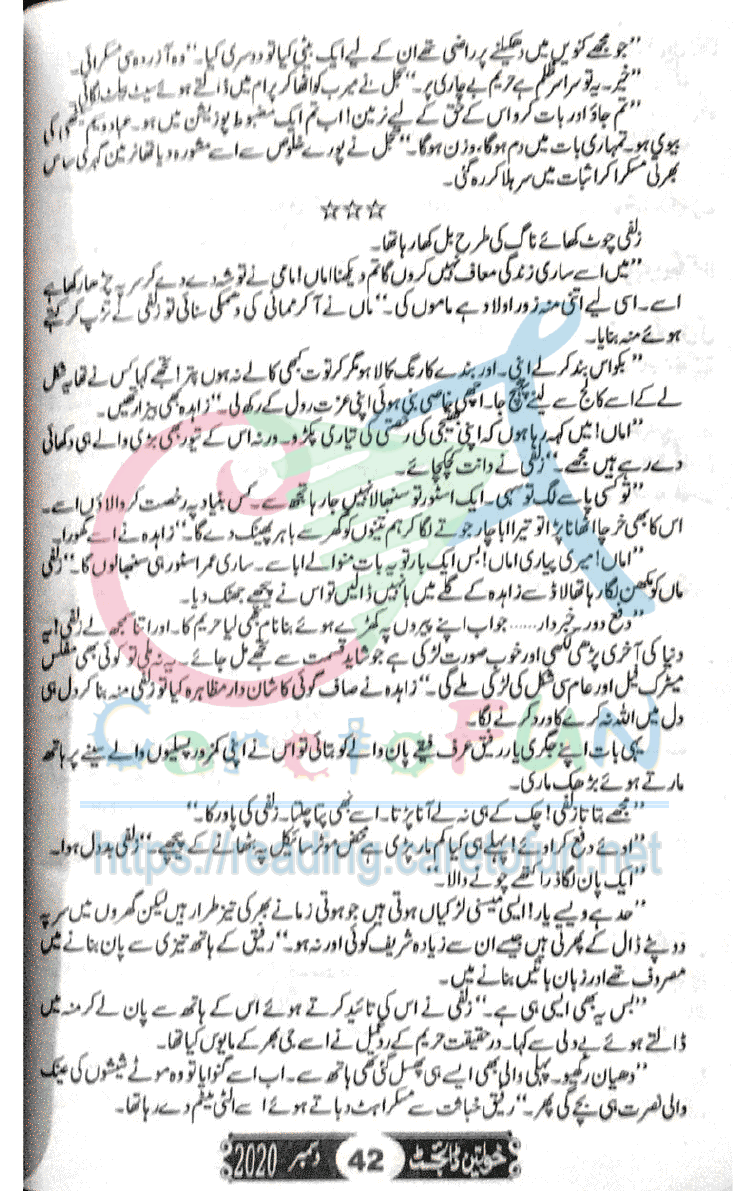 ”جو مجھے کنویں میں دھکیلنے پر راضی تھے ان کے لیے ایک بیٹی کیا تو دوسری کیا۔“ وہ آزردہ سی مسکرائی۔
”خیر۔ یہ تو سراسر ظلم ہے حریم بے چاری پر۔“ تجل نے میرب کو اٹھا کر پرام میں ڈالتے ہوئے سیٹ بیلٹ لگائی
”تم جاؤ اور بات کرو اس کے حق کے لیے زمین! اب تم ایک مضبوط پوزیشن میں ہو۔ عباد وسیم کی
بیوی ہو۔ تمہاری بات میں دم ہوگا، وزن ہوگا۔“ تجل نے پورے خلوص سے اسے مشورہ دیا تھا نرمین گہری سانس
بھرتی مسکرا کر اثبات میں سر ہلا کر رہ گئی۔
☆☆☆
زلفی چوٹ کھائے ناگ کی طرح بل کھا رہا تھا۔
”میں اسے ساری زندگی معاف نہیں کروں گا تم دیکھنا اماں! مامی نے تو شہ دے دے کر سر پہ چڑھا رکھا ہے
اسے۔ اسی لیے اتنی منہ زور اولاد ہے ماموں کی۔“ ماں نے آ کر ممانی کی دھمکی سنائی تو زلفی نے تڑپ کر کہتے
ہوئے منہ بنایا۔
”بکواس بند کر لے اپنی۔ اور بندے کا رنگ کالا ہو مگر کرتوت کبھی کالے نہ ہوں پتر! تجھے کہا کس نے تھا یہ شکل
لے کے اسے کالج سے لینے پہنچ جا۔ اچھی خاصی بنی ہوئی اپنی عزت رول کے رکھ لی۔“ زاہدہ بھی بیزار تھیں۔
”اماں! میں کہہ رہا ہوں کہ اپنی بھتیجی کی رخصتی کی تیاری پکڑو۔ ورنہ اس کے تیور بھی بڑی والے ہی دکھائی
دے رہے ہیں مجھے۔“ زلفی نے دانت کچکچائے۔
”تو کسی پاسے لگ تو سہی۔ ایک اسٹور تو سنبھالا نہیں جا رہا تجھ سے۔ کس بنیاد پہ رخصت کروا لاؤں اسے۔
اس کا بھی خرچا اٹھانا پڑا تو تیرا ابا چار جوتے لگا کر ہم تینوں کو گھر سے باہر پھینک دے گا۔“ زاہدہ نے اسے گھورا۔
”اماں! میری پیاری اماں! بس ایک بار تو یہ بات منوا لے ابا سے۔ ساری عمر اسٹور ہی سنبھالوں گا۔“ زلفی
ماں کو مکھن لگا رہا تھا لاڈ سے زاہدہ کے گلے میں بانہیں ڈالیں تو اس نے پیچھے جھٹک دیا۔
”دفع دور۔ خبردار...... جو اب اپنے پیروں پہ کھڑے ہوئے بنا نام بھی لیا حریم کا۔ اور اتنا سمجھ لے زلفی! یہ
دنیا کی آخری پڑھی لکھی اور خوب صورت لڑکی ہے جو شاید قسمت سے تجھے مل جائے۔ یہ نہ ملی تو کوئی بھی مفلس
میٹرک فیل اور عام سی شکل کی لڑکی ملے گی۔“ زاہدہ نے صاف گوئی کا شان دار مظاہرہ کیا تو زلفی منہ بنا کر دل ہی
دل میں اللہ نہ کرے کا ورد کرنے لگا۔
یہی بات اپنے جگری یار رفیق عرف فیقے پان والے کو بتائی تو اس نے اپنی کمزور پسلیوں والے سینے پر ہاتھ
مارتے ہوئے بڑھک ماری۔
”مجھے بتانا زلفی! چک کے ہی نہ لے آتا پڑتا۔ اسے بھی پتا چلتا۔ زلفی کی پاور کا۔“
”اوئے دفع کر اوئے! پہلے ہی کیا کم مار پڑی ہے محض موٹر سائیکل پہ بٹھانے کے پیچھے۔“ زلفی بددل ہوا۔
”ایک پان لگا ذرا کتھے چونے والا۔“
”حد ہے ویسے یار! ایسی میسنی لڑکیاں ہوتی ہیں جو ہوتی زمانے بھر کی تیز طرار ہیں لیکن گھروں میں سر پہ
دوپٹے ڈال کے پھرتی ہیں جیسے ان سے زیادہ شریف کوئی اور نہ ہو۔“ رفیق کے ہاتھ تیزی سے پان بنانے میں
مصروف تھے اور زبان باتیں بنانے میں۔
”بس یہ بھی ایسی ہی ہے۔“ زلفی نے اس کی تائید کرتے ہوئے اس کے ہاتھ سے پان لے کر منہ میں
ڈالتے ہوئے بے دلی سے کہا۔ درحقیقت حریم کے ردعمل نے اسے جی بھر کے مایوس کیا تھا۔
”دھیان رکھیو۔ پہلی والی بھی ایسے ہی پھسل گئی تھی ہاتھ سے۔ اب اسے گنوایا تو وہ موٹے شیشوں کی عینک
والی نصرت ہی بچے گی پھر۔“ رفیق خباثت سے مسکراہٹ دباتے ہوئے اسے الٹی میٹم دے رہا تھا۔
CaretoFUN
https://reading.caretofun.net
خواتین ڈائجسٹ 42 دسمبر 2020